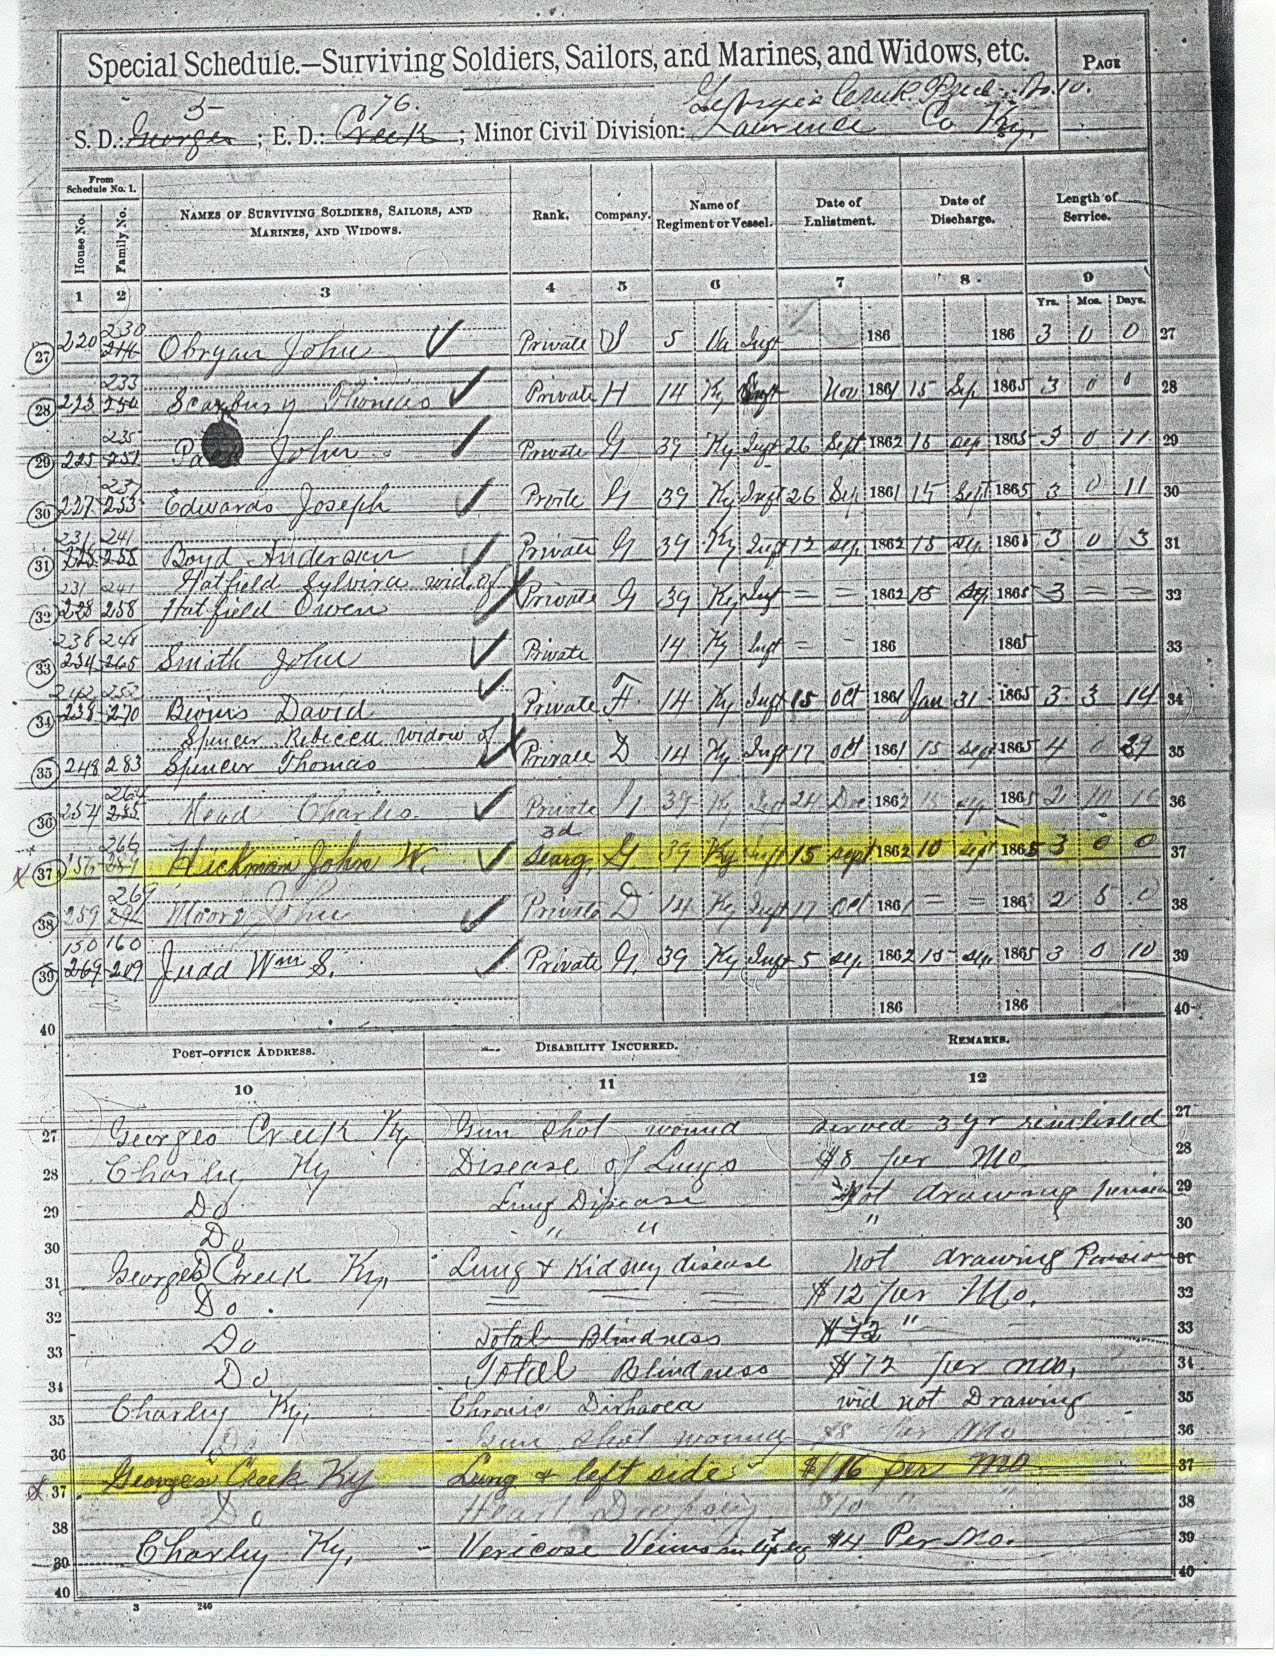 Special Schedule.—Surviving Soldiers, Sailors, and Marines, and Widows, etc.
PAGE
5 76. Georges Creek Prec. No. 10.
S. D.: Georges ; E. D.: Creek ; Minor Civil Division: Lawrence Co Ky.
From Schedule No. 1.
House No. Family No. NAMES OF SURVIVING SOLDIERS, SAILORS, AND MARINES, AND WIDOWS. Rank. Company. Name of Regiment or Vessel. Date of Enlistment. Date of Discharge. Length of Service.
1 2 3 4 5 6 7 8 9
Yrs. Mos. Days.
230
27 220 Obryan John Private 5 Va Inft 186 186 3 0 0 27
233
28 223 Scarbury Thomas Private H 14 Ky Inft Nov 1861 15 Sep 1865 3 0 28
235
29 225 251 John Private G 39 Ky Inft 26 Sept 1862 15 sep 1865 3 0 11 29
237
30 227 253 Edwards Joseph Private G 39 Ky Inft 26 Sep 1861 15 Sept 1865 3 0 11 30
231 241
31 255 Boyd Anderson Private G 39 Ky Inft 12 sep 1862 15 sep 1865 3 0 3 31
231 241 Hatfield Sylvira wid. of
32 228 258 Hatfield Owen Private G 39 Ky Inft = = 1862 15 Sep 1865 3 = = 32
238 248
33 234 265 Smith John Private 14 Ky Inft = - 186 1865 33
242 252
34 238 270 David Private F 14 Ky Inft 15 Oct 1861 Jan 31 1865 3 3 14 34
Spencer Rebecca widow of
35 248 283 Spencer Thomas Private D 14 Ky Inft 17 Oct 1861 15 sep 1865 4 0 29 35
264
36 254 285 Mead Charles Private 39 Ky Inft 24 Dec 1862 15 sep 1865 2 10 16 36
266 3d
37 156 Hickman John W. Searg. G 39 Ky Inft 15 sept 1862 10 sept 1865 3 0 0 37
269
38 259 Moore John Private D 14 Ky Inft 17 Oct 1861 = = 186 2 5 0 38
150 160
39 269 Judd Wm S. Private G. 39 Ky Inft 5 sep 1862 15 sep 1865 3 0 10 39
40 186 186 40
POST-OFFICE ADDRESS. DISABILITY INCURRED. REMARKS.
10 11 12
27 Georges Creek Ky Gun shot wound served 3 yr reinlisted 27
28 Charley Ky Disease of Lungs $8 per Mo. 28
29 Do Lung Disease Not drawing Pension 29
30 Do " " " 30
31 Georges Creek Ky, Lung & Kidney disease not drawing Pension 31
32 Do . = = = $12 per Mo, 32
33 Do Total Blindness $72 " 33
34 Do Total Blindness $72 per mo, 34
35 Charley Ky, Chronic Dirhaoea wid not Drawing 35
36 Do Gun shot wound $8 per Mo 36
37 Georges Creek Ky Lung & left side $16 per Mo 37
38 Do Heart Dropsy $10 " " 38
39 Charley Ky, Vericose Veins in $4 Per Mo. 39
40 40
3 246